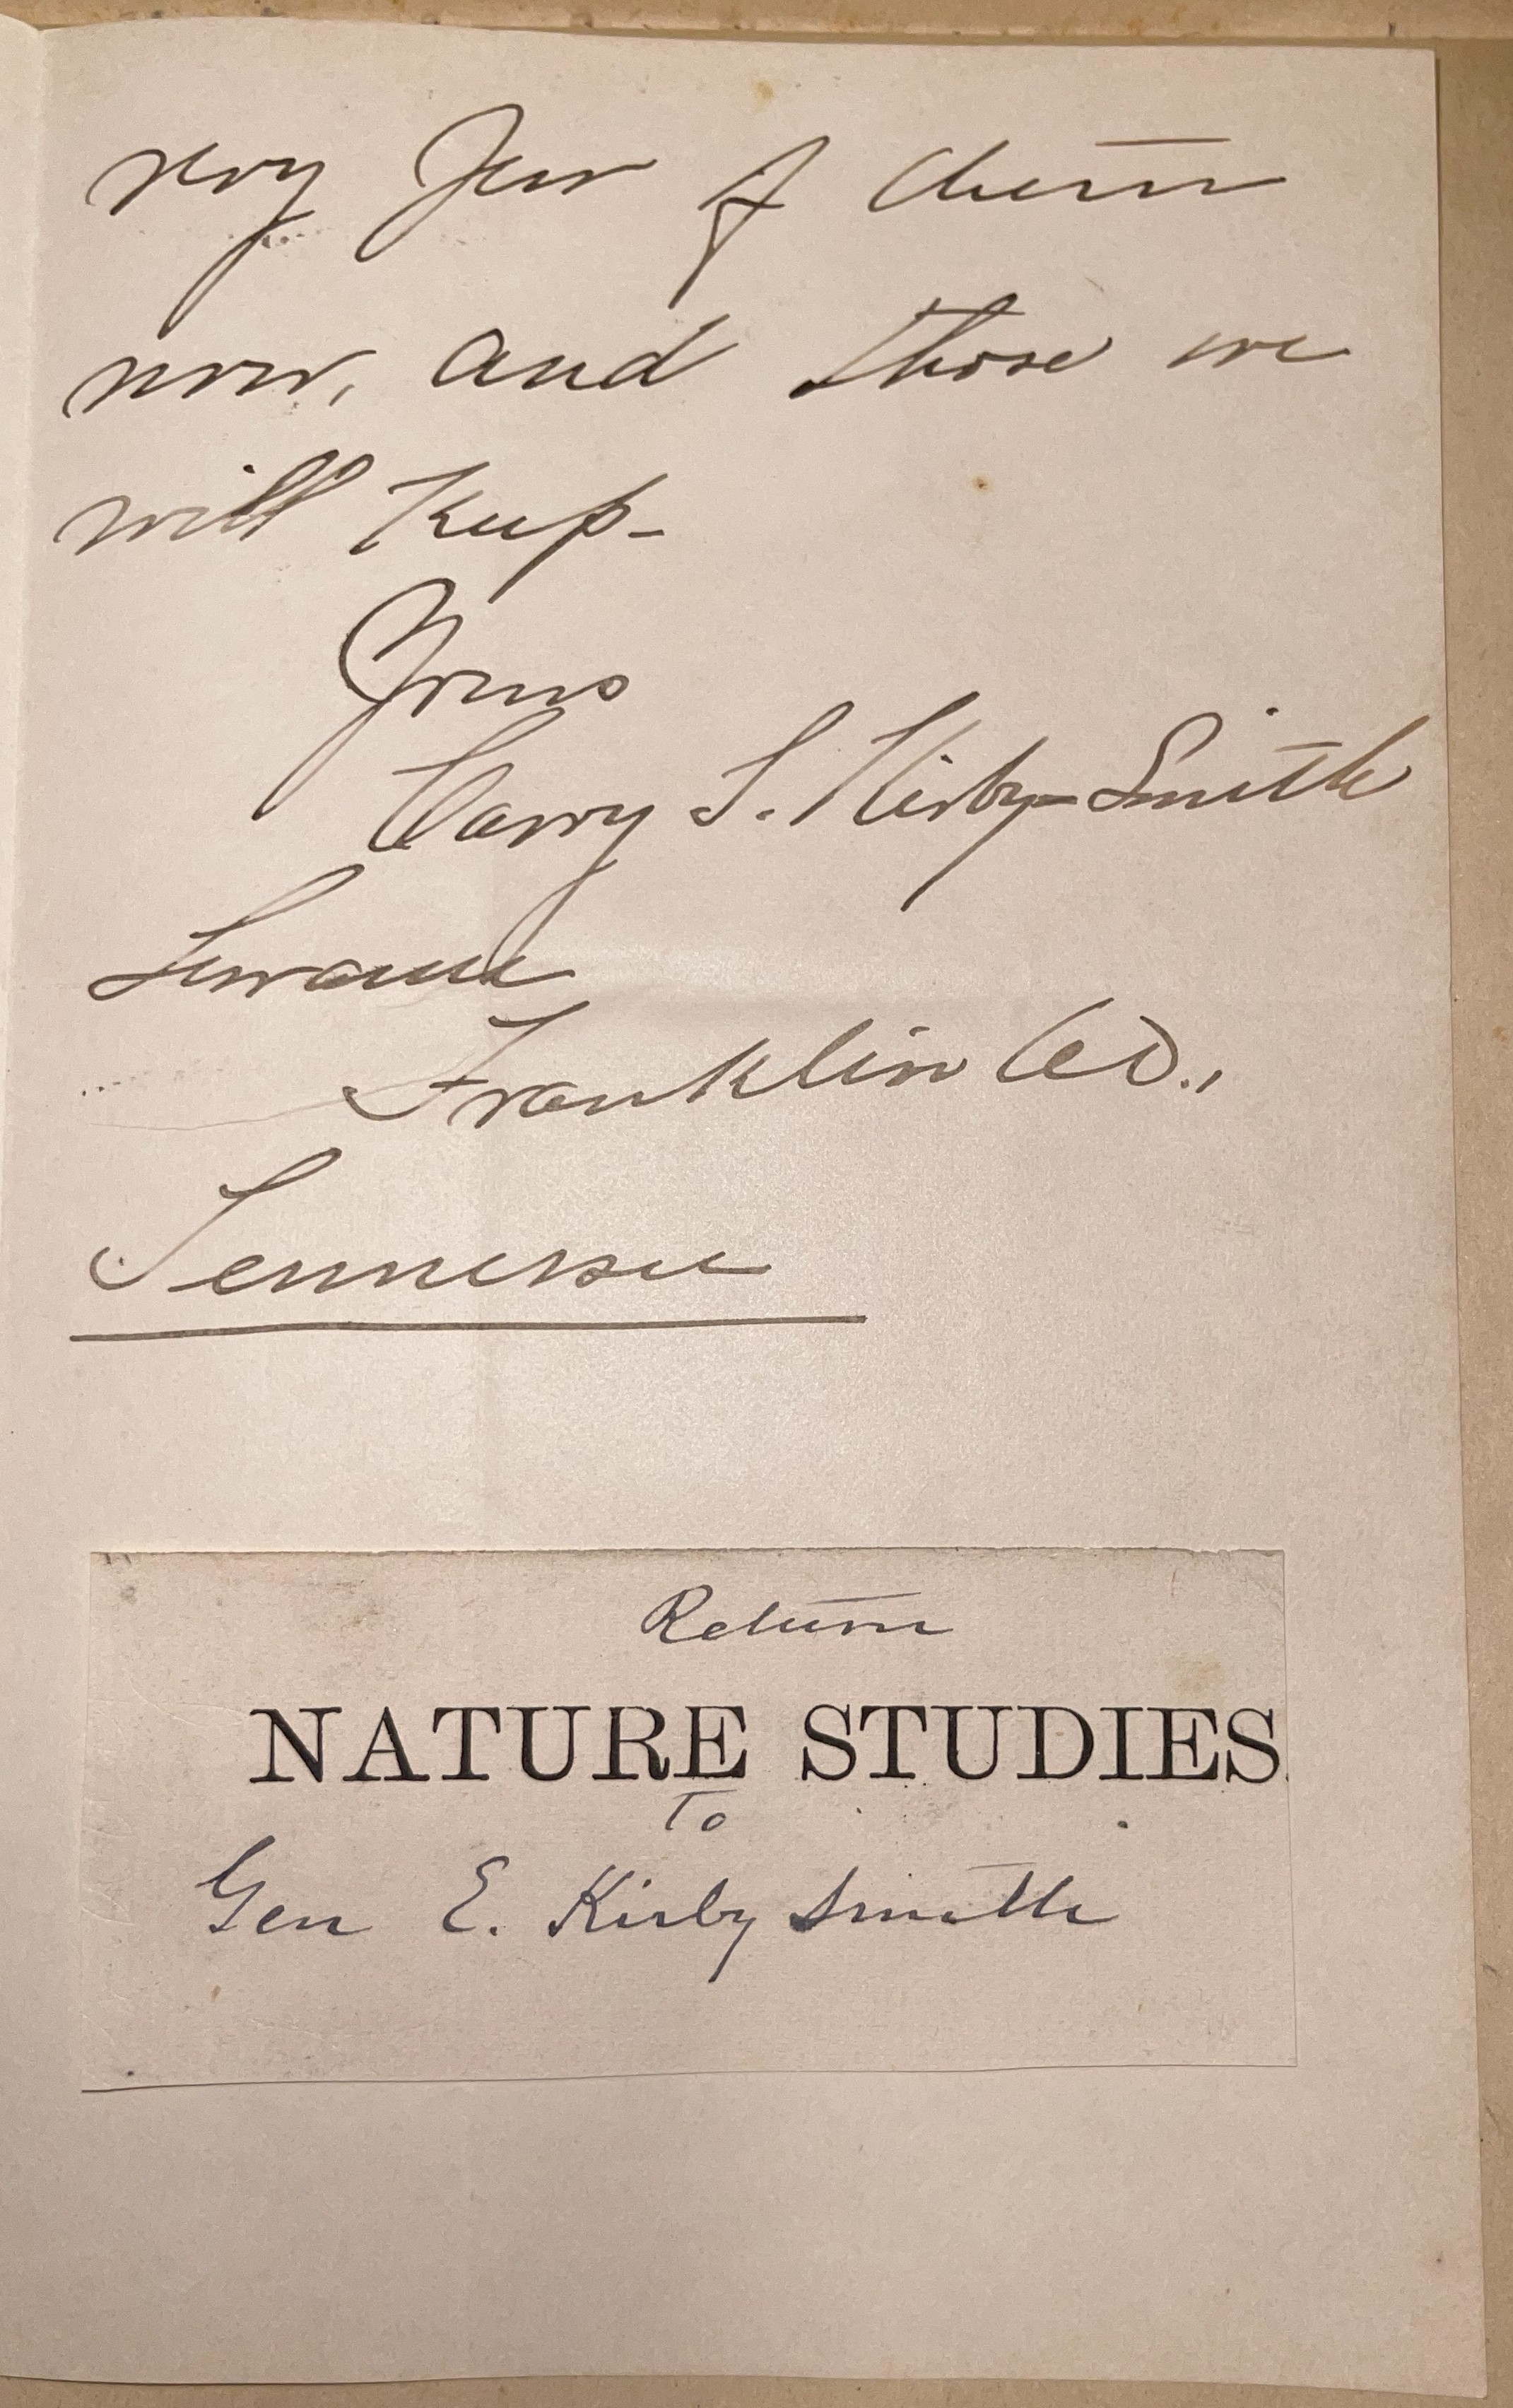 very few of them
now, and those we
will keep -
Yours
Carry S. Kirby-Smith
Sewanee
Franklin Co.,
Tennessee
Return
NATURE STUDIES
To
Gen E. Kirby Smith